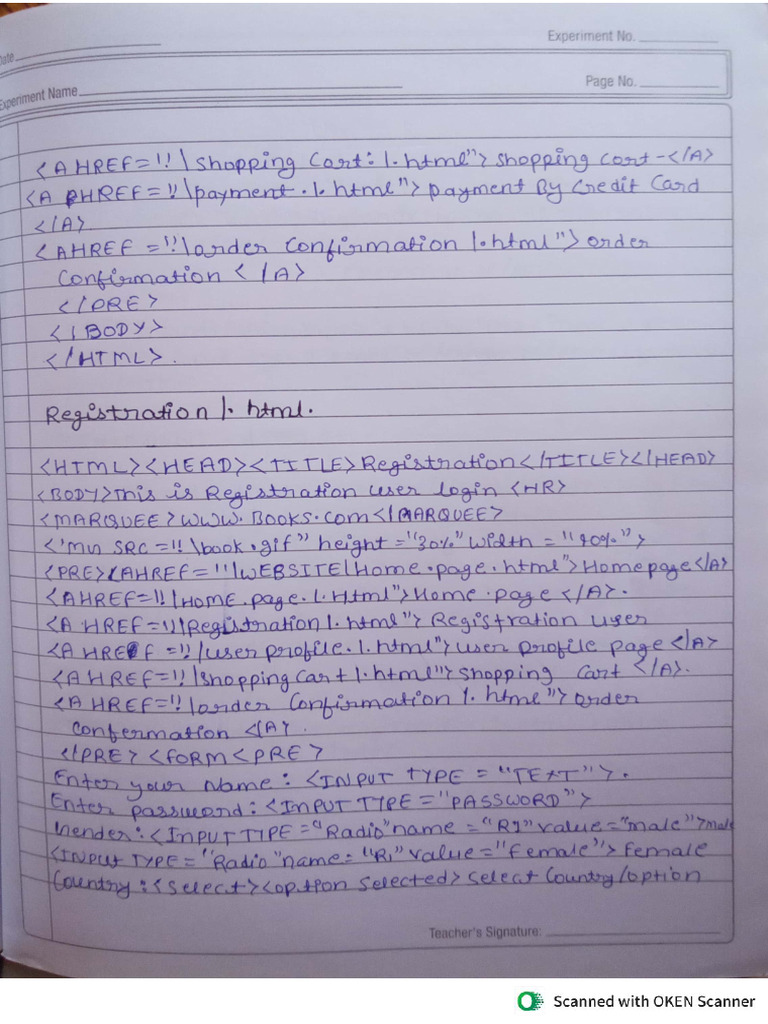 Date
Experiment No.
Experiment Name
Page No.
<A HREF="\Shopping Cart: 1.html"> Shopping cort-</A>
<A HREF="\payment.1.html"> payment By Credit Card
</A>
<AHREF="\order Confirmation 1.html"> order
Confirmation </A>
</PRE>
</BODY>
</HTML>.
Registration 1.html.
<HTML><HEAD><TITLE>Registration</TITLE></HEAD>
<BODY>This is Registration user login <HR>
<MARQUEE>WWW.BOOKS.com</MARQUEE>
<'mu SRC="\book.gif" height="30%" width="90%">
<PRE><AHREF="\WEBSITE\Home.page.html">Homepage</A>
<AHREF="/HOME.page.1.Html">Home.page </A>.
<A HREF="/Registration 1.html"> Registration user
<A HREF="/user profile.1.html">user profile page</A>
<A HREF="/shopping Cart 1.html">shopping Cart </A>.
<A HREF="/order Confirmation 1.html"> order
Confermation </A>.
</PRE> <FORM <PRE>
Enter your Name: <INPUT TYPE="TEXT">.
Enter password: <INPUT TYPE="PASSWORD">
hender: <INPUT TYPE="Radio" name="R1" value="male">male
<INPUT TYPE="Radio" name="R1" value="female"> female
Country: <Select><option selected> Select Country/option
Teacher's Signature:
Scanned with OKEN Scanner